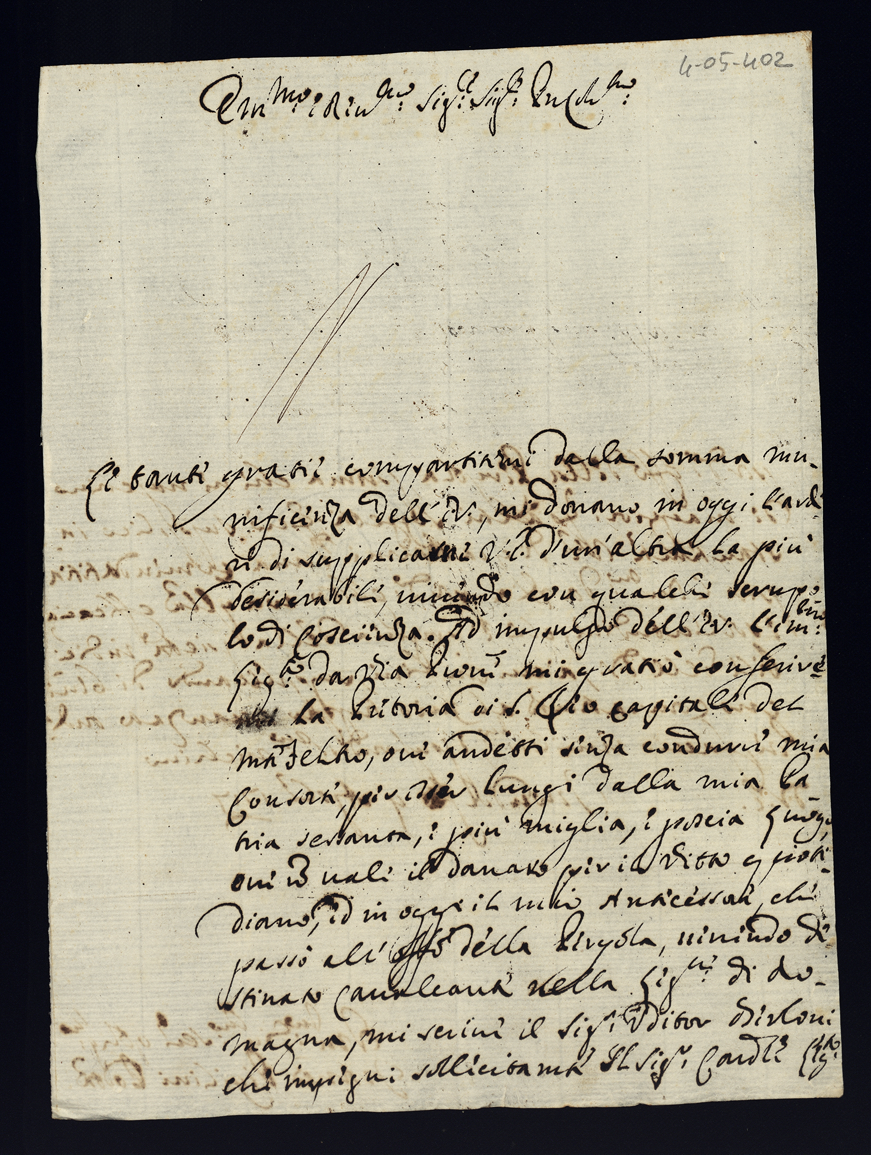 4-05-402
Em.mo e Rev.mo Sig.re Sig.re P.ron Col.mo
Le tante gratie compartitemi dalla somma mu-
nificienza dell' E.V., mi donano in oggi l'ardi-
re di supplicarne V.E. d'un'altra la più
desiderabile, con qualche scrupo-
lo di Coscienza. Ad impulso dell' E.V. l'Em.mo
Sig.re da mi gratiò conferire
la Pretoria di S. capitale del
Feltro, ove andetti senza condurre mia
Consorte, per esser lungi dalla mia Pa
tria sessanta, e più miglia, e poscia luogo,
ove vale il danaro per il vitto quoti-
diano, ed in oggi il mio Antecessore, che
passò all' Off.o della Pergola, venendo de
stinato Cavalcante nella Leg.ne di Ro-
magna, mi scrive il Sig.r Uditor
che impegni sollecitam.te Il Sig.r Card.le Leg.to